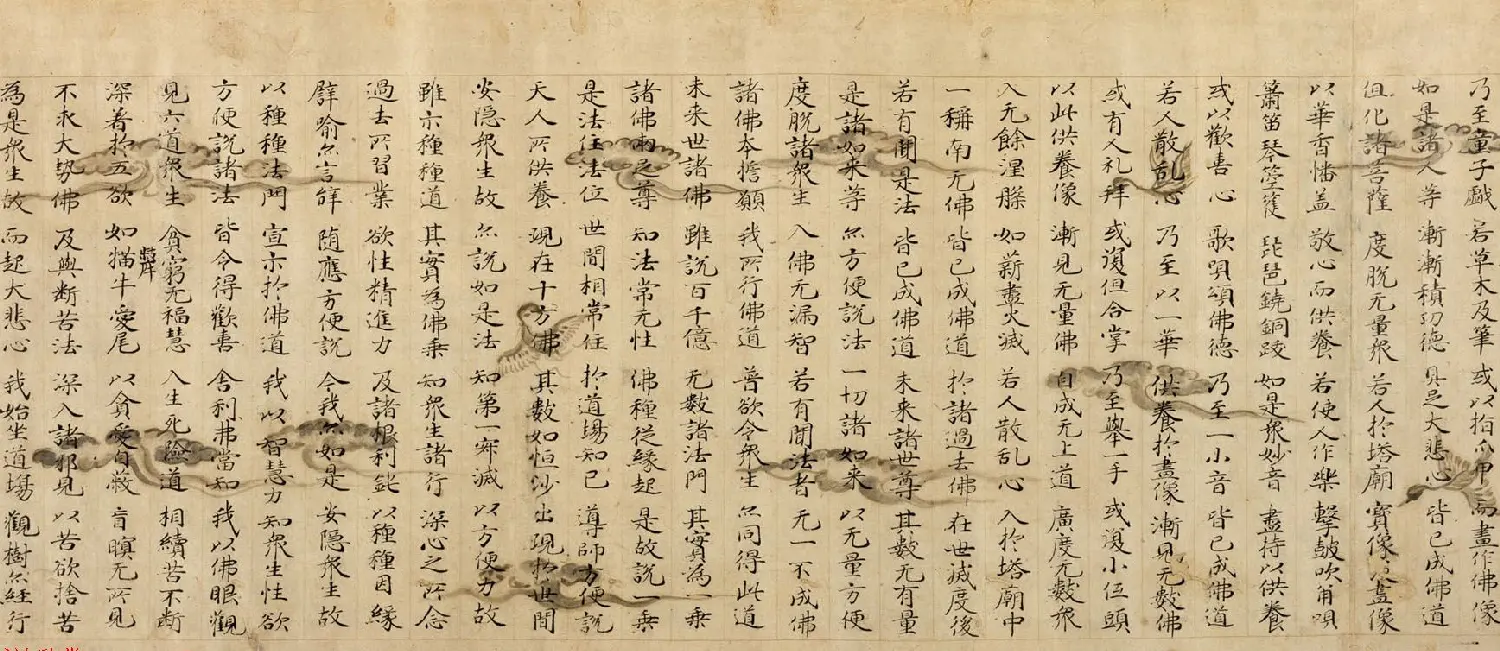 乃至童子戲 若草木及筆 或以指爪甲 而畫作佛像
如是諸人等 漸漸積功德 具足大悲心 皆已成佛道
但化諸菩薩 度脫无量衆 若人於塔廟 寶像及畫像
以華香幡盖 敬心而供養 若使人作樂 擊皷吹角唄
簫笛琴箜篌 琵琶鐃銅跋 如是衆妙音 盡持以供養
或以歡喜心 歌唄頌佛德 乃至一小音 皆已成佛道
若人散乱心 乃至以一華 供養於畫像 漸見无數佛
或有人礼拜 或復但合掌 乃至舉一手 或復小伍頭
以此供養像 漸見无量佛 自成无上道 廣度无數衆
入无餘涅槃 如薪盡火滅 若人散乱心 入於塔廟中
一稱南无佛 皆已成佛道 於諸過去佛 在世滅度後
若有聞是法 皆已成佛道 未来諸世尊 其數无有量
是諸如来等 亦方便說法 一切諸如来 以无量方便
度脫諸衆生 入佛无漏智 若有聞法者 无一不成佛
諸佛本擔願 我所行佛道 普欲令衆生 亦同得此道
未来世諸佛 雖說百千億 无數諸法門 其實為一乗
諸佛兩之尊 知法常无性 佛種従緣起 是故說一乗
是法住法位 世間相常住 於道場知已 導師方便說
天人所供養 現在十方佛 其數如恒沙 出現於世間
安隱衆生故 亦說如是法 知第一寂滅 以方便力故
雖示種種道 其實為佛乗 知衆生諸行 深心之所念
過去所習業 欲性精進力 及諸根利鈍 以種種因緣
譬喻亦言辞 随應方便說 今我亦如是 安隱衆生故
以種種法門 宣示於佛道 我以智慧力 知衆生性欲
方便說諸法 皆令得歡喜 舍利弗當知 我以佛眼觀
見六道衆生 貧窮无福慧 入生死險道 相續苦不断
深著於五欲 如猫牛愛尾 以貪愛自蔽 盲瞑无所見
不求大勢佛 及與断苦法 深入諸邪見 以苦欲捨苦
為是衆生故 而起大悲心 我始坐道場 觀樹亦經行